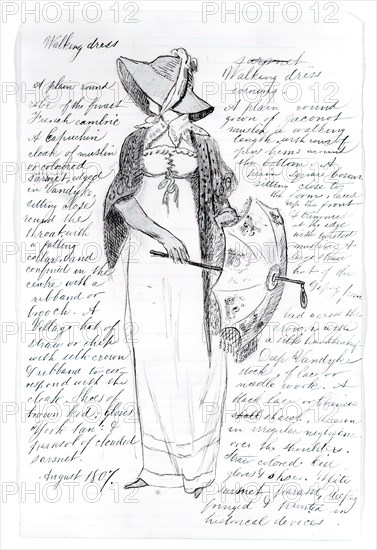 Walking dress
A plain round
robe of the finest
French cambric
A Capuchin
cloak of muslin
or coloured
sarsnet, edged
in Vandyke,
sitting close
round the
throat with
a falling
collar, and
confined in the
centre with a
ribband or
brooch. A
Village hat of
straw or chip
with silk crown
& ribband to cor
respond with the
cloak. Shoes of
brown kid, gloves
of York tan, &
parasol of clouded
sarsnet.
August 1807.
sarsnet
Walking dress
evening.
A plain round
gown of jaconot
muslin, a walking
length, with rows of
hems around
the bottom. A
plain square bosom
sitting close to
the form, laced
up the front
& trimmed
at the edge
with
A
hat of the
ied across the
crown with
a silk handkerchief.
Deep Vandyke
of lace or
needle work. A
black lace or
shawl, thrown
in irregular negligence
over the shoulders.
Straw colored kid
gloves & shoes. White
sarsnet parasol, deeply
fringed & painted in
historical devices.
PHOTO12